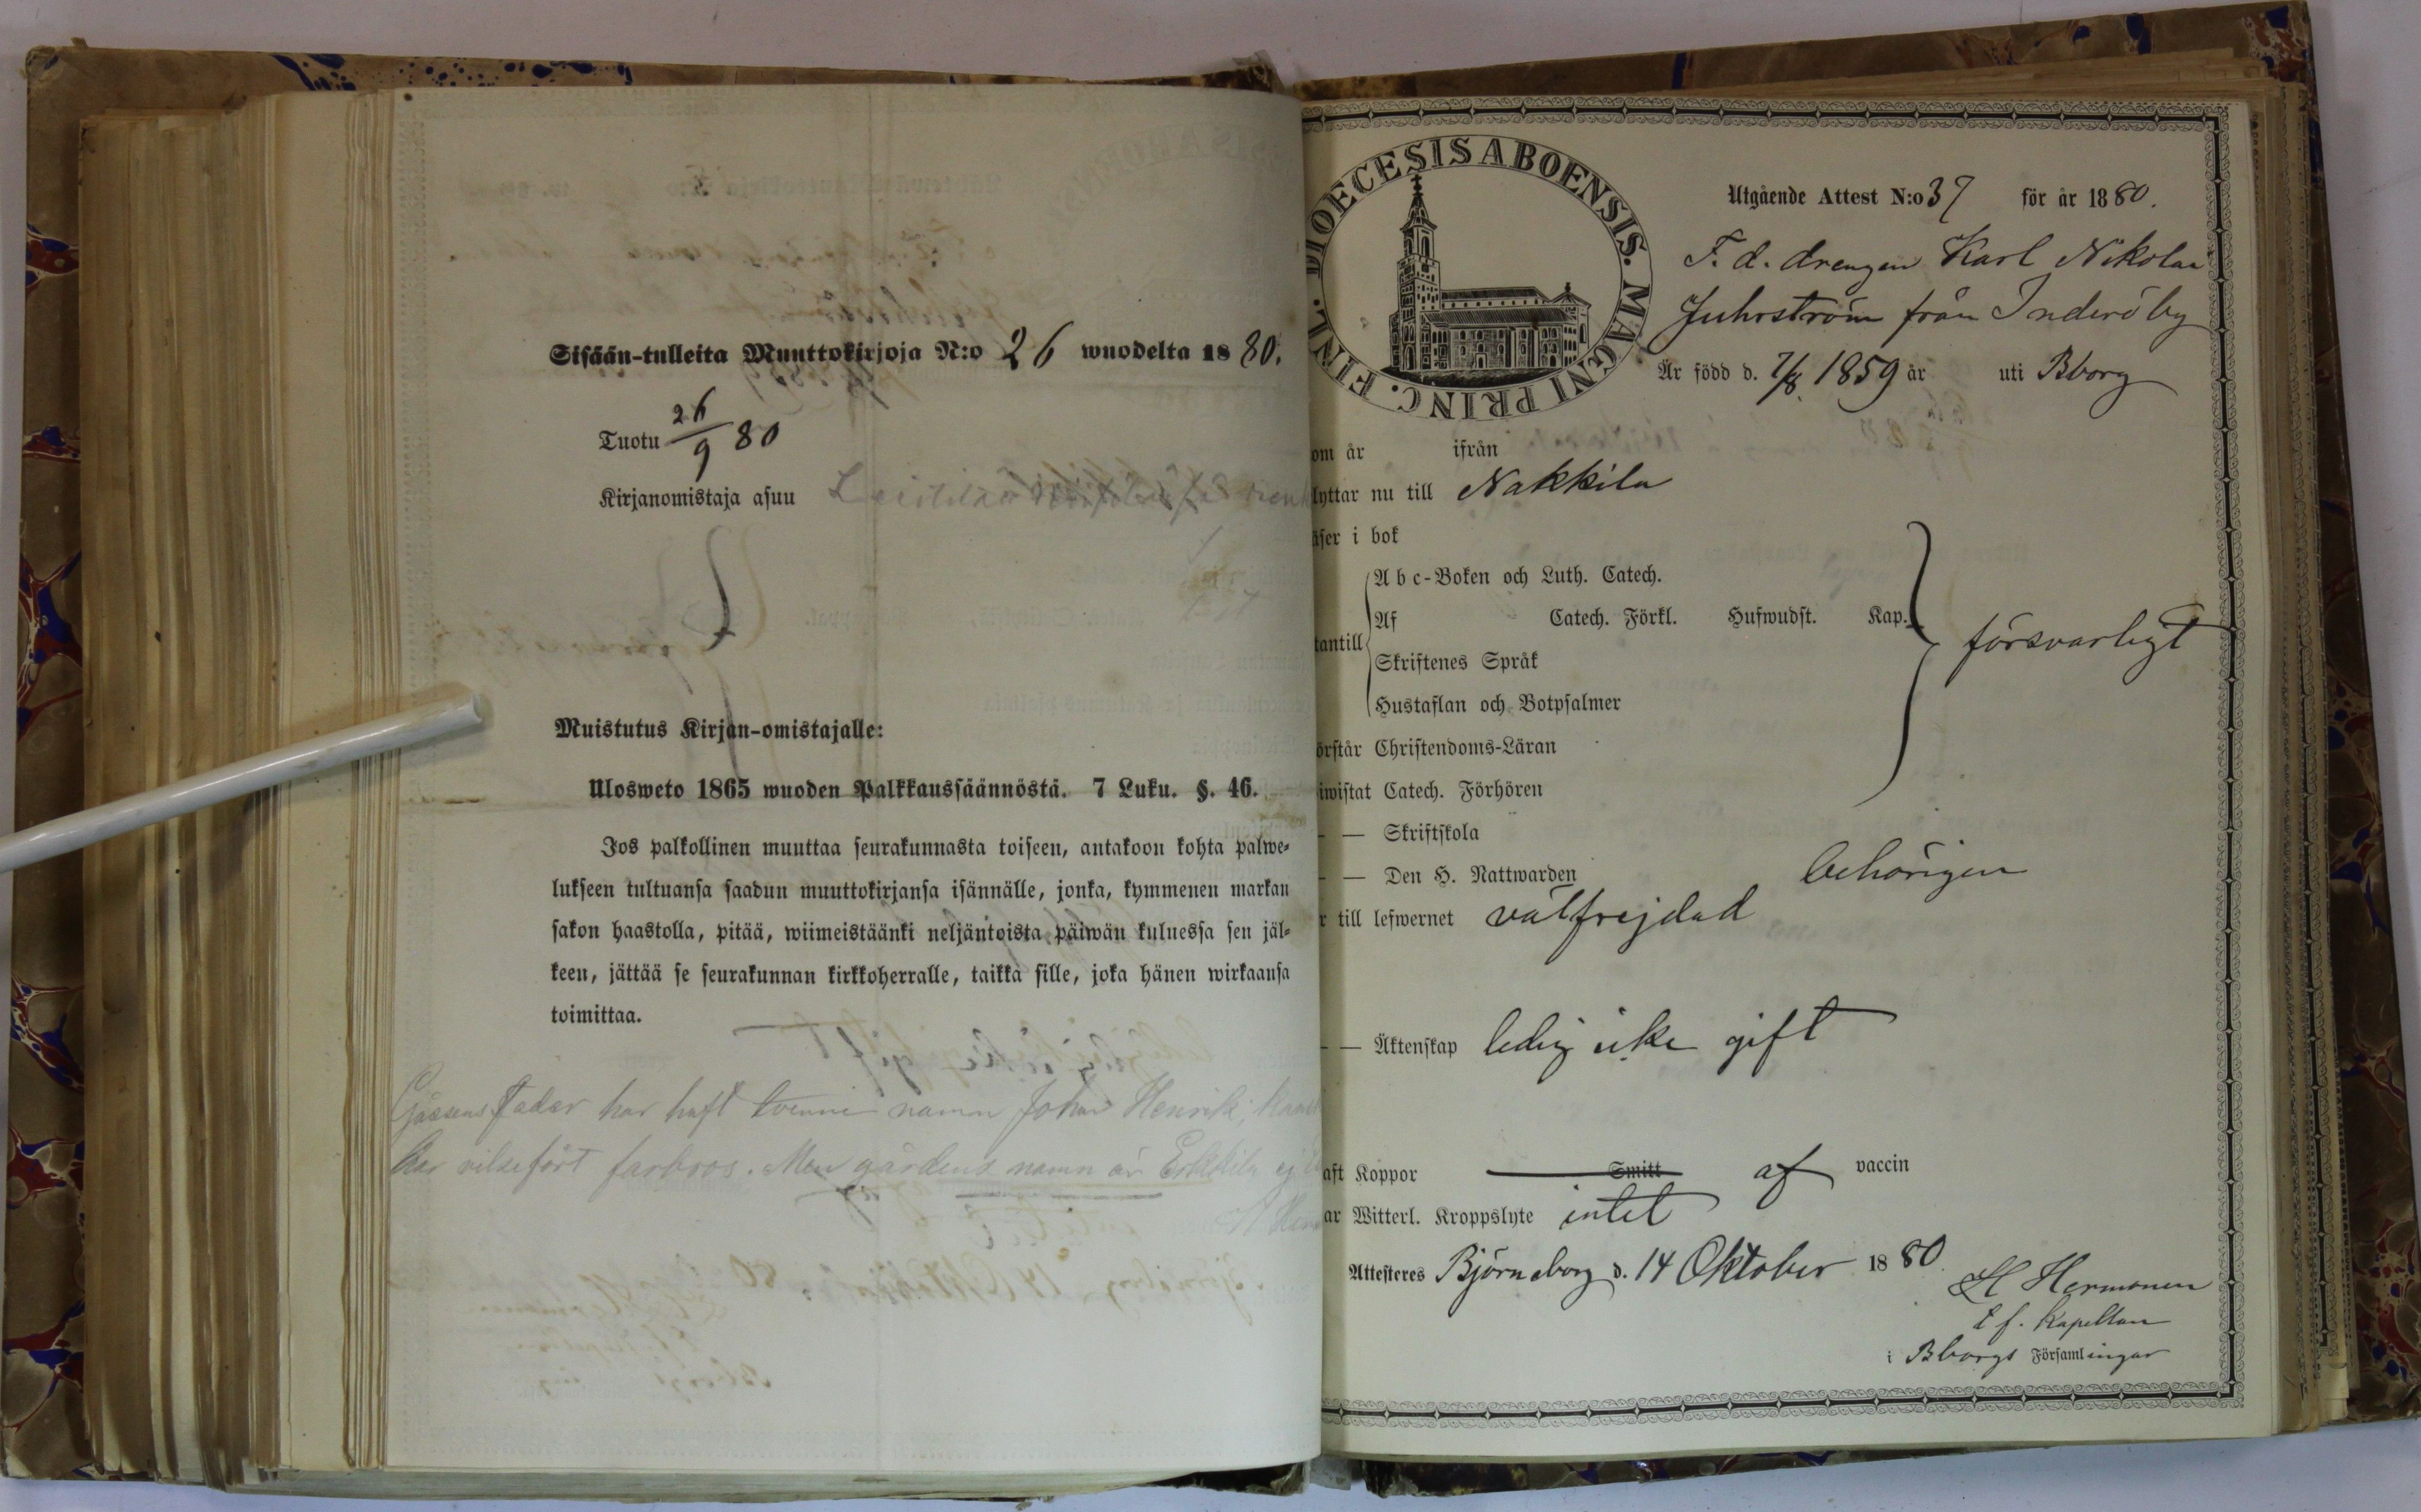 Sisään-tulleita Muuttokirjoja N:o 26 wuodelta 1880.
Tuotu 26/9 80
Kirjanomistaja asuu
Muistutus Kirjan-omistajalle:
Ulosweto 1865 wuoden Palkkaussäännöstä. 7 Luku. §. 46.
Jos palkollinen muuttaa seurakunnasta toiseen, antakoon kohta palwe-
lukseen tultuansa saadun muuttokirjansa isännälle, jonka, kymmenen markan
sakon haastolla, pitää, wiimeistäänki neljäntoista päiwän kuluessa sen jäl-
keen, jättää se seurakunnan kirkkoherralle, taikka sille, joka hänen wirkaansa
toimittaa.
fadar har haft tvenne namn Johan Henrik;
har vilsefört farbror. Men gårdens namn är Erkkila ej
DIOECESIS ABOENSIS. MAGNI PRINC. FINL.
Utgående Attest N:o 37 för år 1880.
F. d. drengen Karl Nikolai
Juhrström från Inderöby
Är född d. 7/8. 1859 år uti Bborg
om år ifrån
lyttar nu till Nakkila
äser i bok
Abc-Boken och Luth. Catech.
Af Catech. Förkl. Hufwudst. Kap.
tantill försvarligt
Skriftenes Språk
Hustaflan och Botpsalmer
örstår Christendoms-Läran
iwistat Catech. Förhören
— — Skriftskola
— — Den H. Nattwarden behörigen
r till lefwernet välfrejdad
— — Äktenskap ledig icke gift
aft Koppor Smitt af vaccin
ar Witterl. Kroppslyte intet
Attesteres Björneborg d. 14 Oktober 1880.
H Hermonen
t f. Kapellan
i Bborgs Församlingar